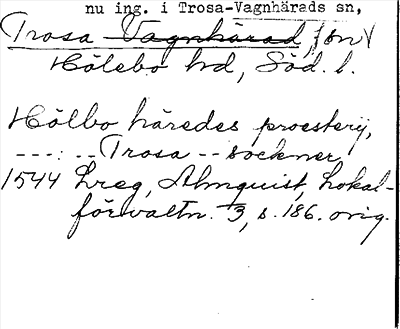 nu ing. i Trosa-Vagnhärads sn,
Trosa Vagnhärad, (sn)
Hölebo hd, Söd. l.
Hölbo häredes proesterij,
---:--Trosa -- sockner,
1544 Lreg, Almquist, Lokal-
förvaltn. 3, s. 186. orig.